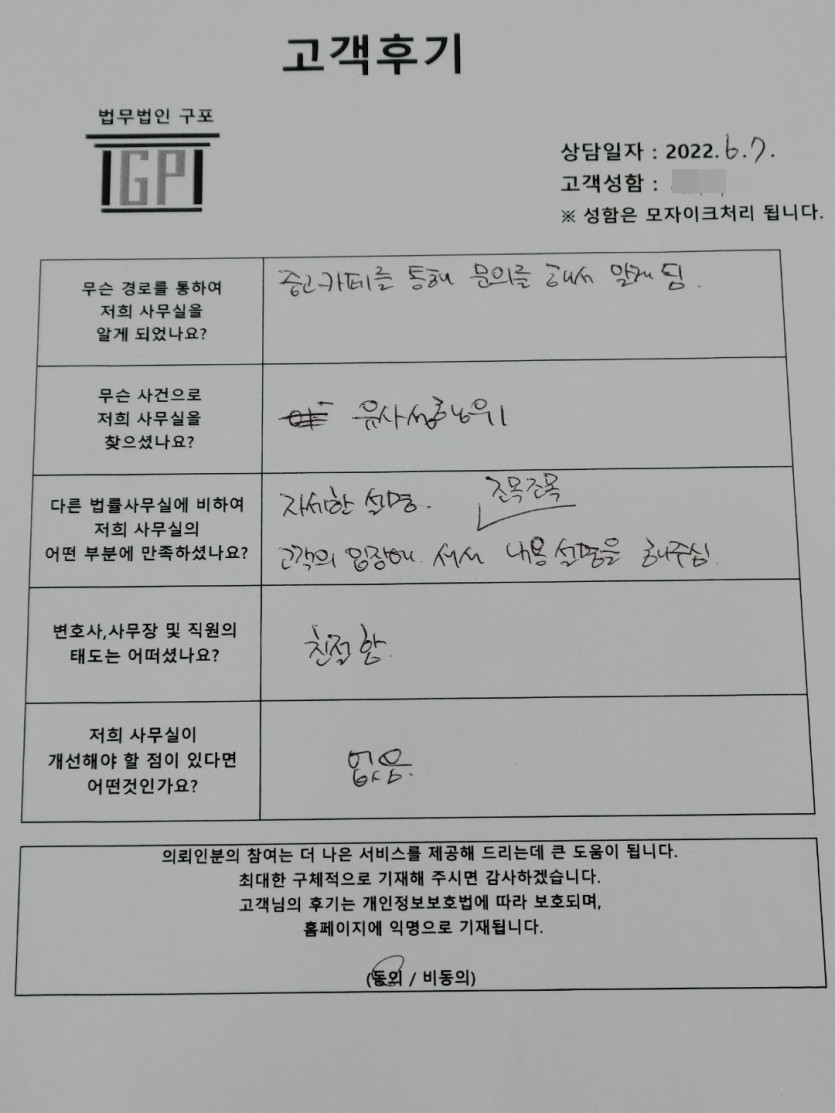 고객후기
법무법인 구포
IGPI
상담일자 : 2022. 6. 7.
고객성함 :
※ 성함은 모자이크처리 됩니다.
무슨 경로를 통하여
저희 사무실을
알게 되었나요?
중고카페를 통해 문의를 해서 알게 됨.
무슨 사건으로
저희 사무실을
찾으셨나요?
유사성행위
다른 법률사무실에 비하여
저희 사무실의
어떤 부분에 만족하셨나요?
자세한 설명. 조목조목
고객의 입장에 서서 내용 설명을 해주심.
변호사,사무장 및 직원의
태도는 어떠셨나요?
친절함.
저희 사무실이
개선해야 할 점이 있다면
어떤것인가요?
없음.
의뢰인분의 참여는 더 나은 서비스를 제공해 드리는데 큰 도움이 됩니다.
최대한 구체적으로 기재해 주시면 감사하겠습니다.
고객님의 후기는 개인정보보호법에 따라 보호되며,
홈페이지에 익명으로 기재됩니다.
(동의 / 비동의)